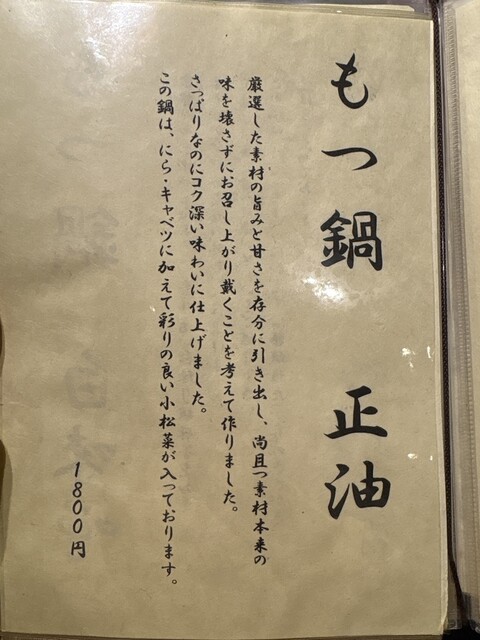 もつ鍋 正油
厳選した素材の旨みと甘さを存分に引き出し、尚且つ素材本来の
味を壊さずにお召し上がり戴くことを考えて作りました。
さっぱりなのにコク深い味わいに仕上げました。
この鍋は、にら・キャベツに加えて彩りの良い小松菜が入っております。
1800円